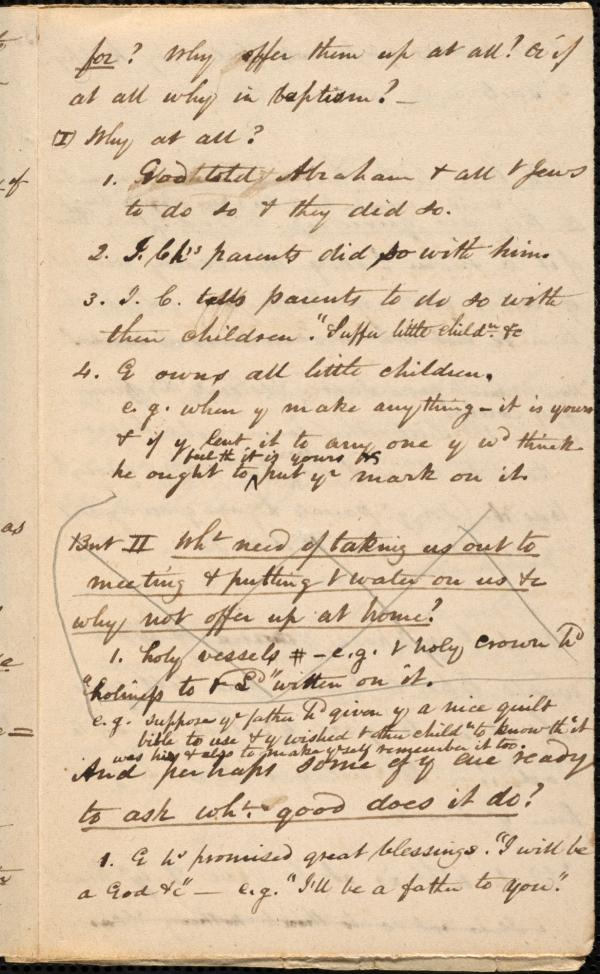 for? Why offer them up at all? & if
at all why in baptism? —
(I) Why at all?
1. God told Abraham & all ye Jews
to do so & they did so.
2. J. Ch's parents did so with him.
3. J. C. tells parents to do so with
their children. "Suffer little childn. &c
4. G owns all little children.
e.g. when y make anything - it is yours
& if y lent it to any one y wd think
feel th it is yours &
he ought to ^ put yr mark on it.
But II Wht need of taking us out to
meeting & putting ye water on us &c
why not offer up at home?
1. holy vessels # - e.g. ye holy crown hd
"holiness to ye Ld" written on it.
e.g. suppose yr father hd given y a nice quilt
bible to use & y wished ye other childn to know tht it
was his & also to make yself remember it too.
And perhaps some of y are ready
to ask wht. good does it do?
1. G hs promised great blessings. "I will be
a God &c" — e.g. "I'll be a father to you."
of
as